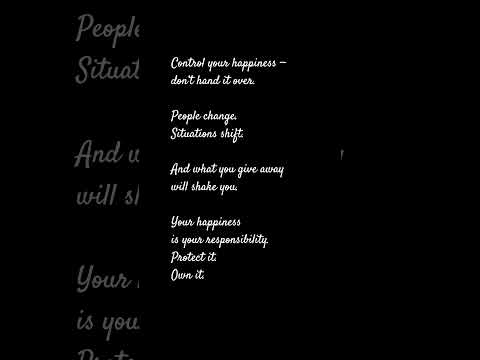 Control your happiness —
don't hand it over.
People change.
Situations shift.
And what you give away
will shake you.
Your happiness
is your responsibility.
Protect it.
Own it.
People
Situat
And w
will sh
Your
is you
Prote